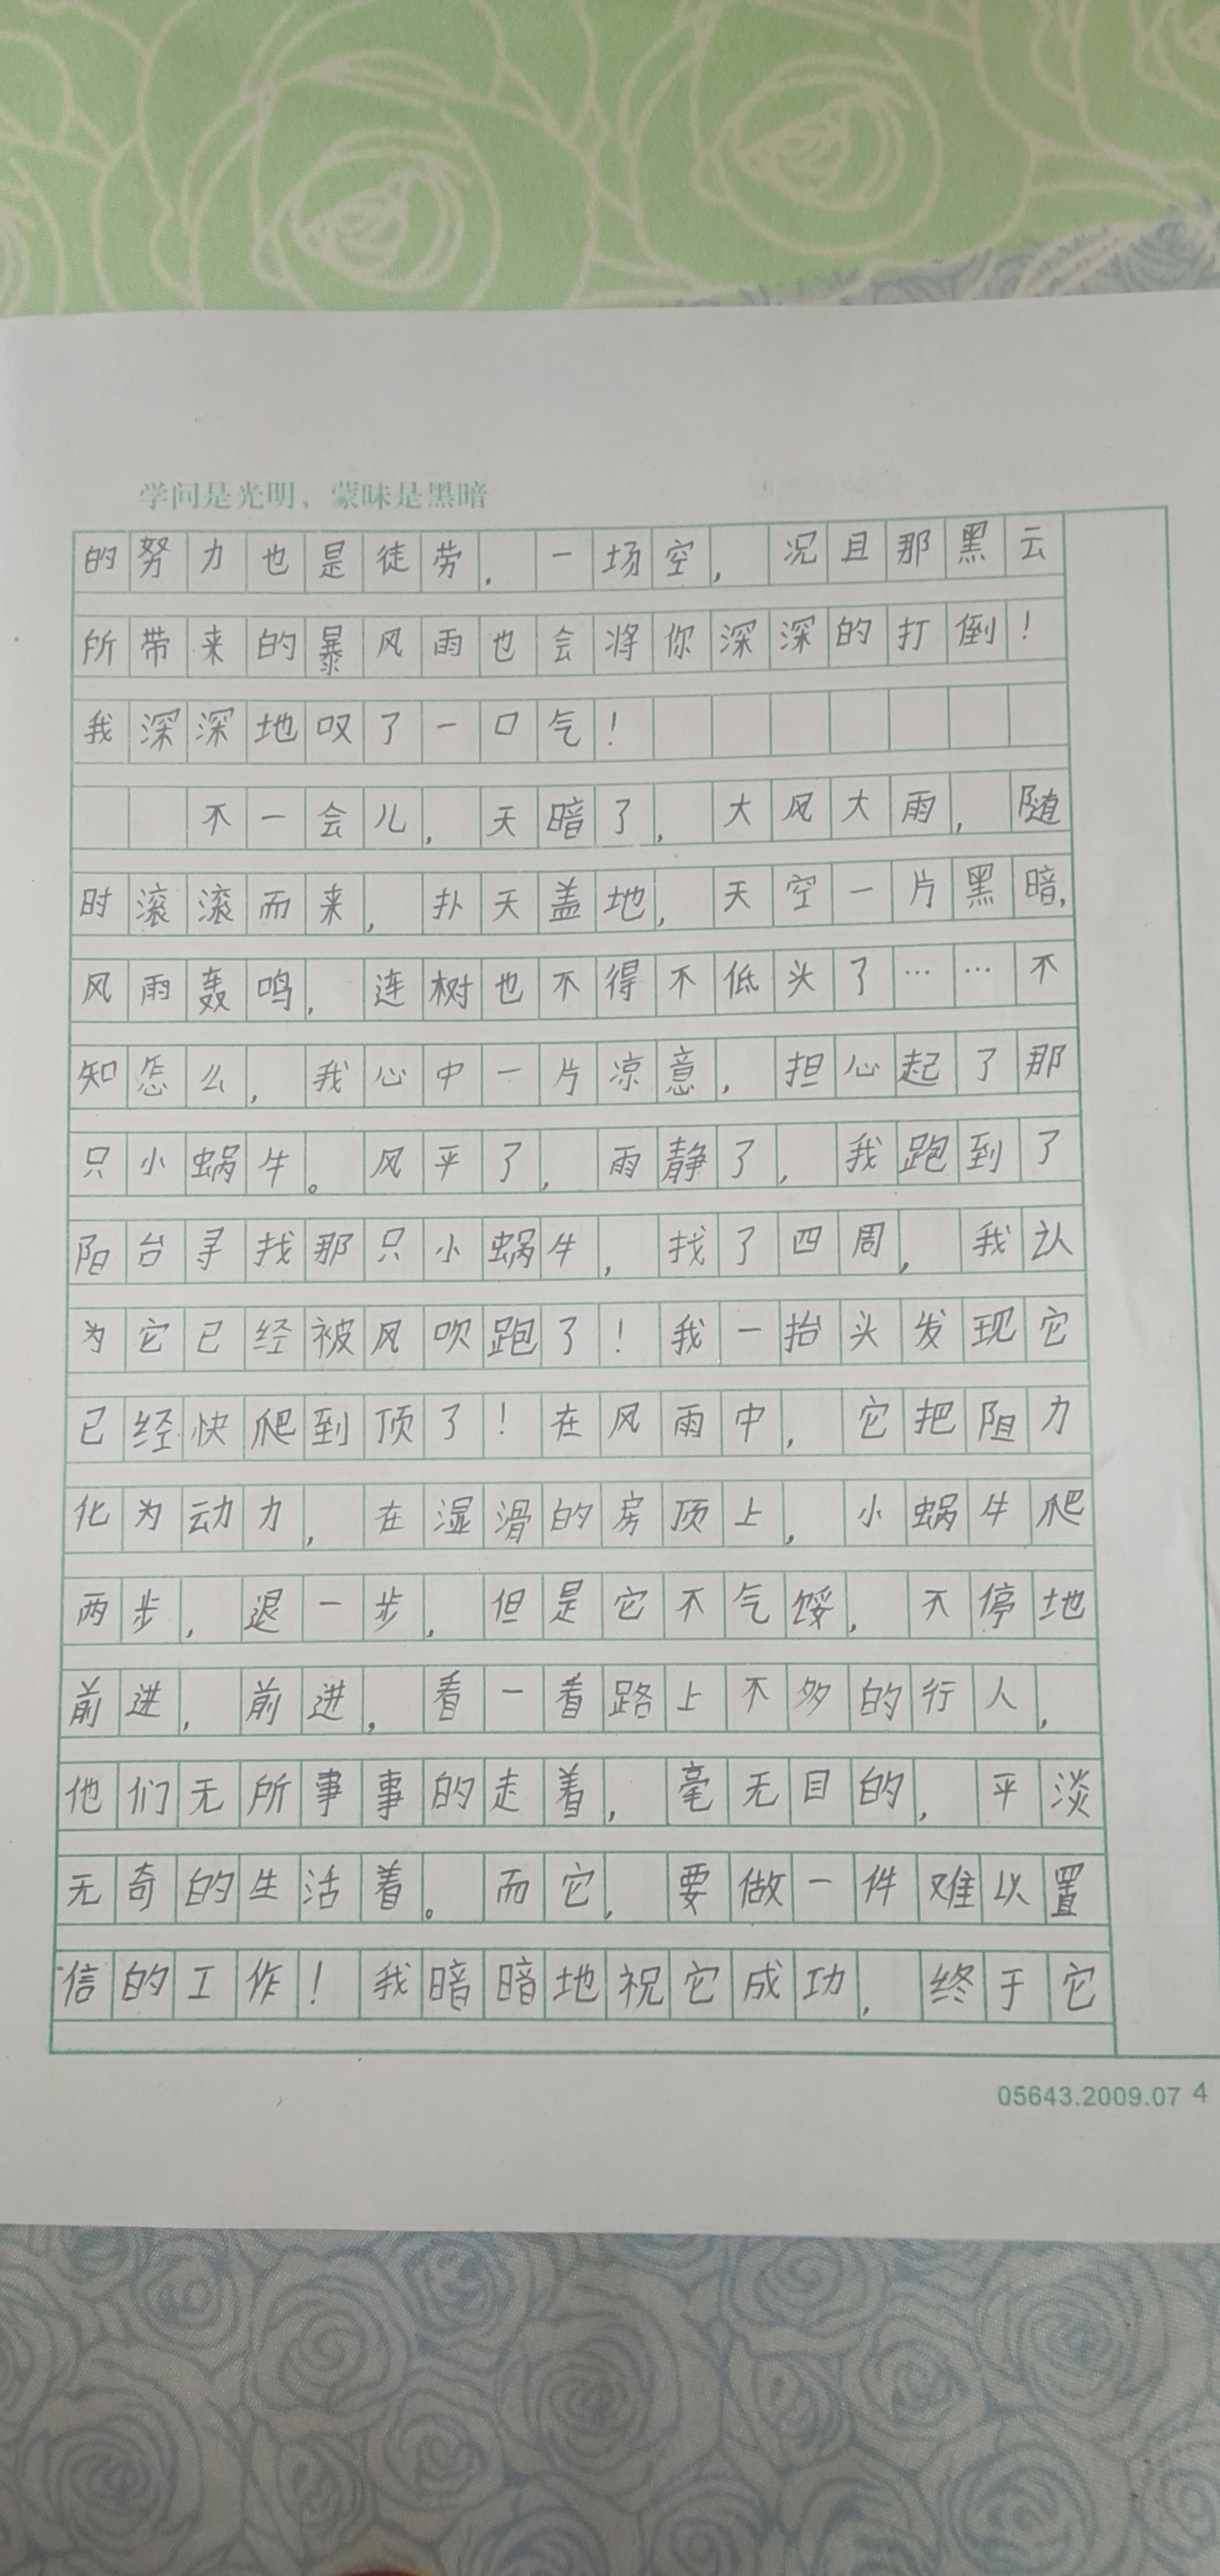 学问是光明，蒙昧是黑暗
的努力也是徒劳，一场空，况且那黑云
所带来的暴风雨也会将你深深的打倒！
我深深地叹了一口气！
不一会儿，天暗了，大风大雨，随
时滚滚而来，扑天盖地，天空一片黑暗，
风雨轰鸣，连树也不得不低头了……不
知怎么，我心中一片凉意，担心起了那
只小蜗牛。风平了，雨静了，我跑到了
阳台寻找那只小蜗牛，找了四周，我认
为它已经被风吹跑了！我一抬头发现它
已经快爬到顶了！在风雨中，它把阻力
化为动力，在湿滑的房顶上，小蜗牛爬
两步，退一步，但是它不气馁，不停地
前进，前进，看一看路上不多的行人，
他们无所事事的走着，毫无目的，平淡
无奇的生活着。而它，要做一件难以置
信的工作！我暗暗地祝它成功，终于它
05643.2009.07 4